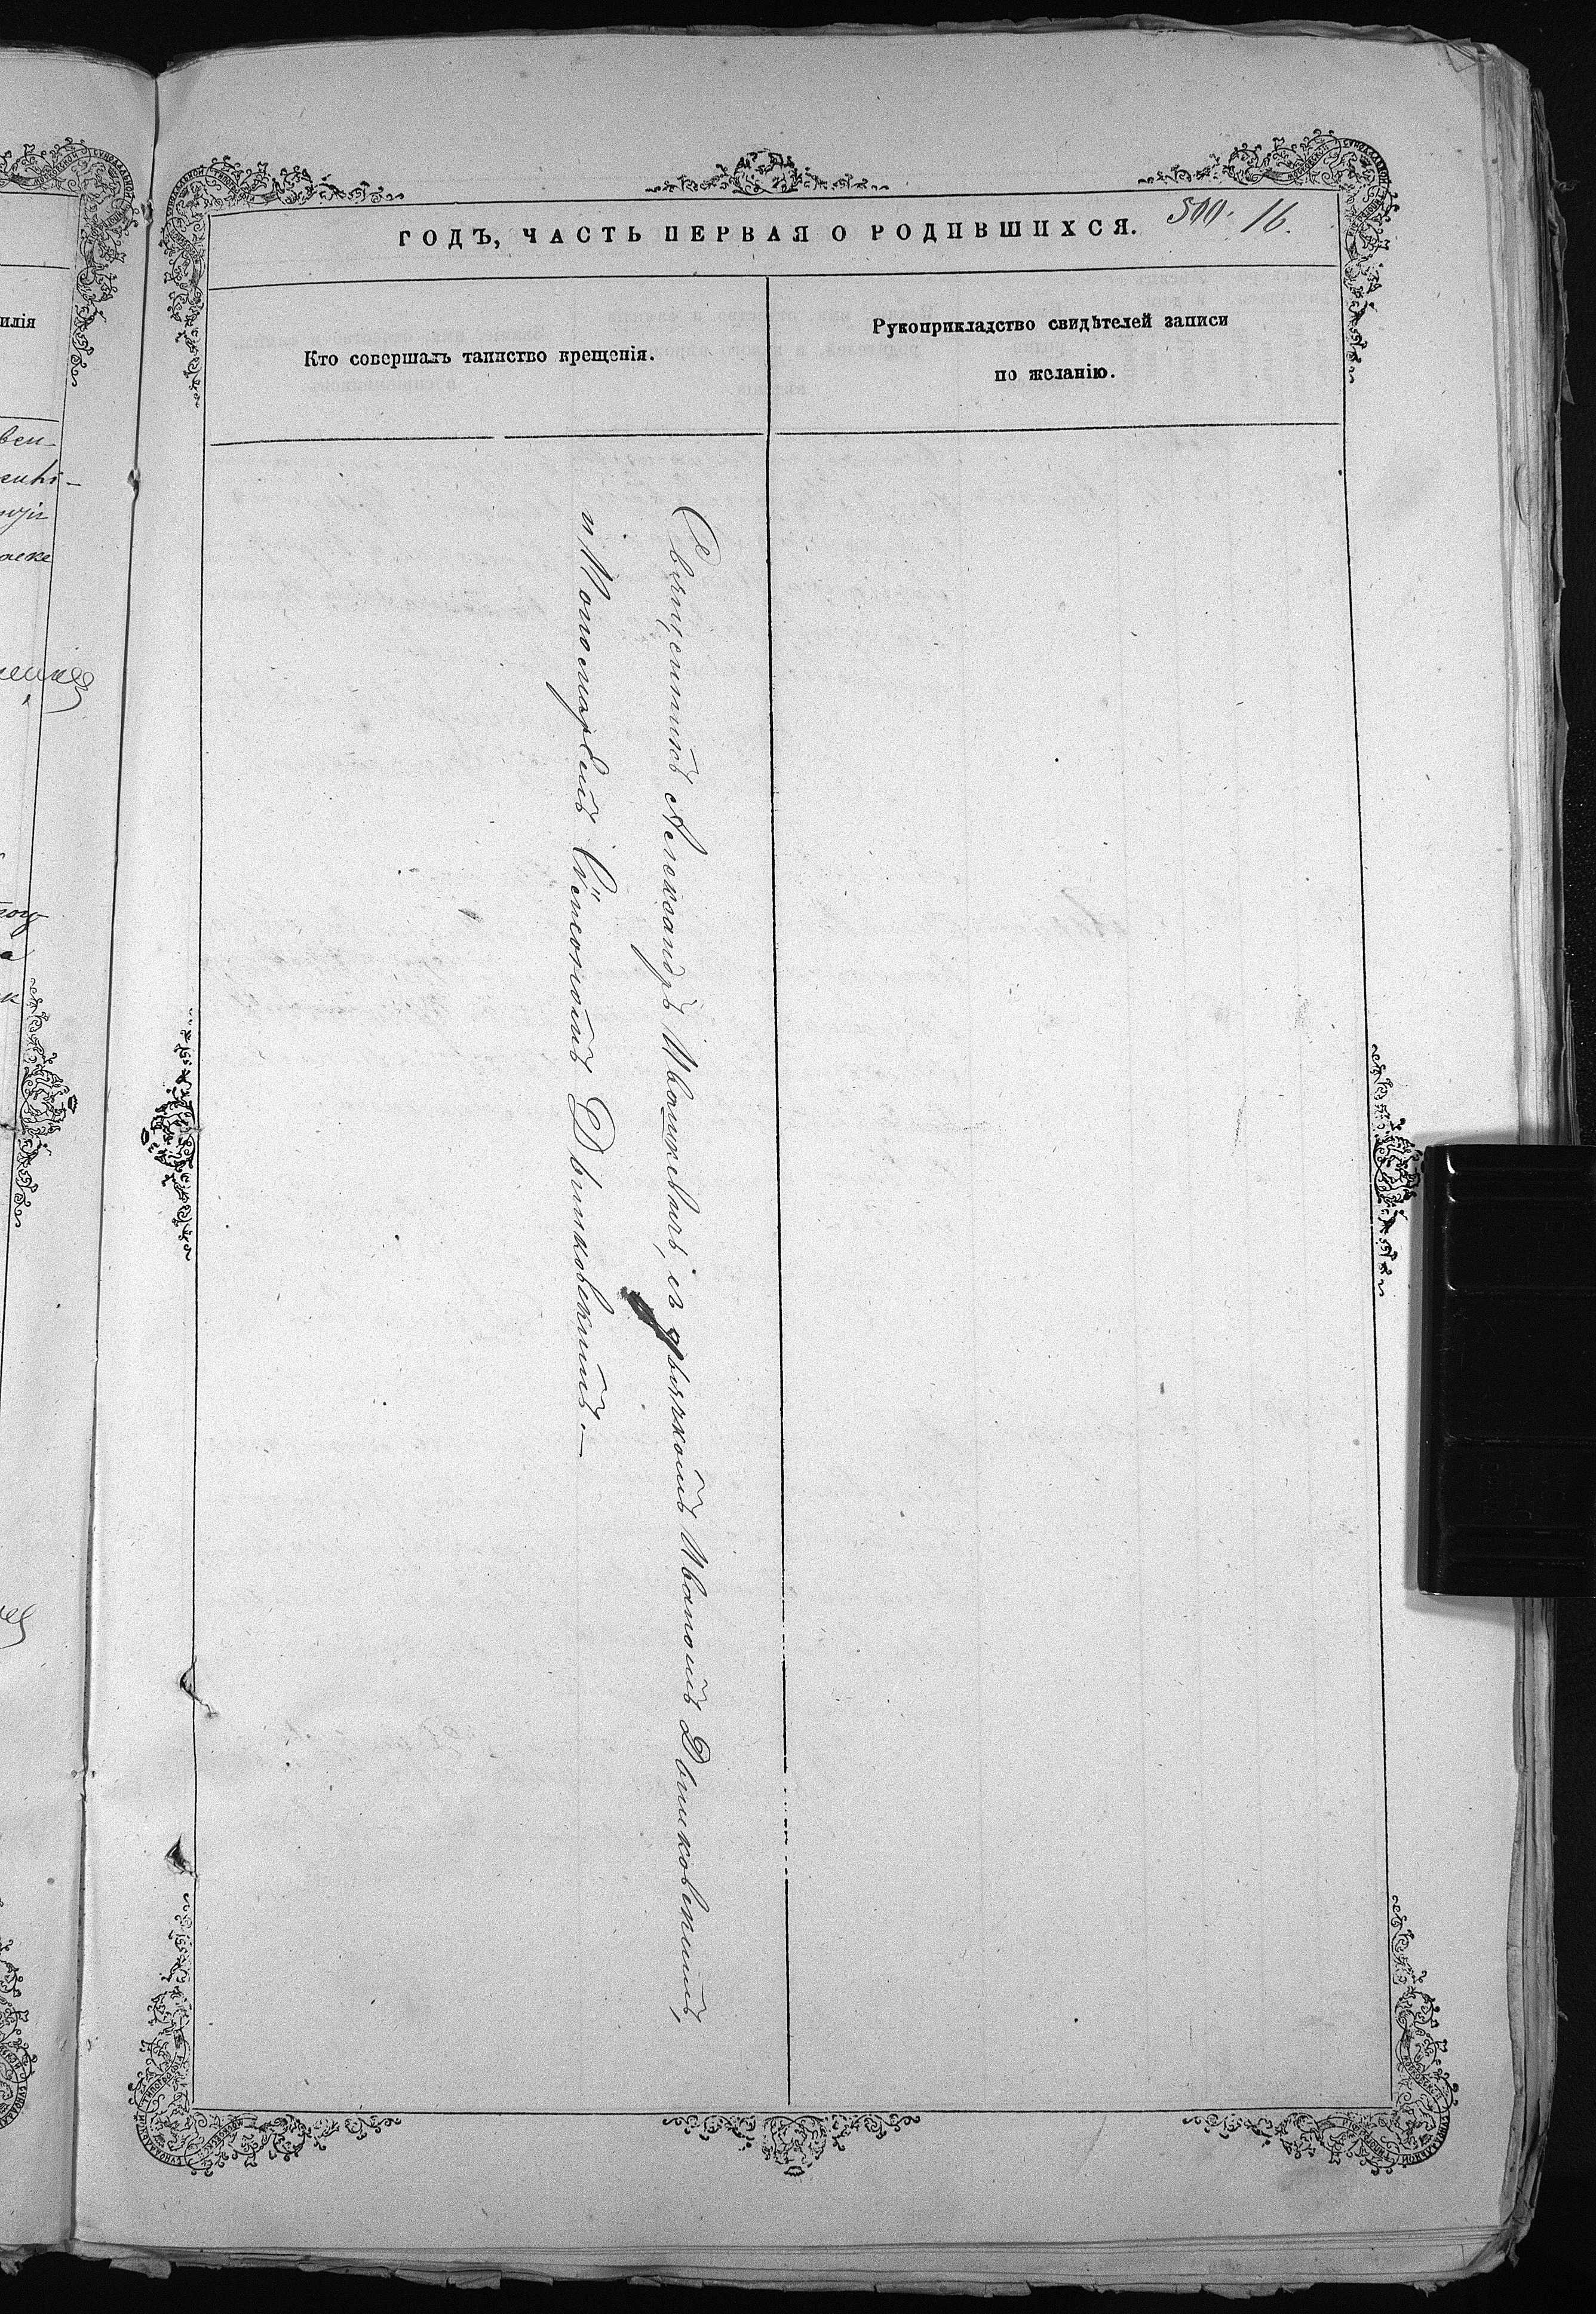 ГОДЪ, ЧАСТЬ ПЕРВАЯ О РОДИВШИХСЯ.
500. 16.
Кто совершалъ таинство крещенія.
Рукоприкладство свидѣтелей записи
по желанію.
Священникъ Александръ Ивашкевичъ, съ дьячкомъ Иваномъ Двинковскимъ,
и Пономаремъ Сѵмеономъ Двинковскимъ.—
илія